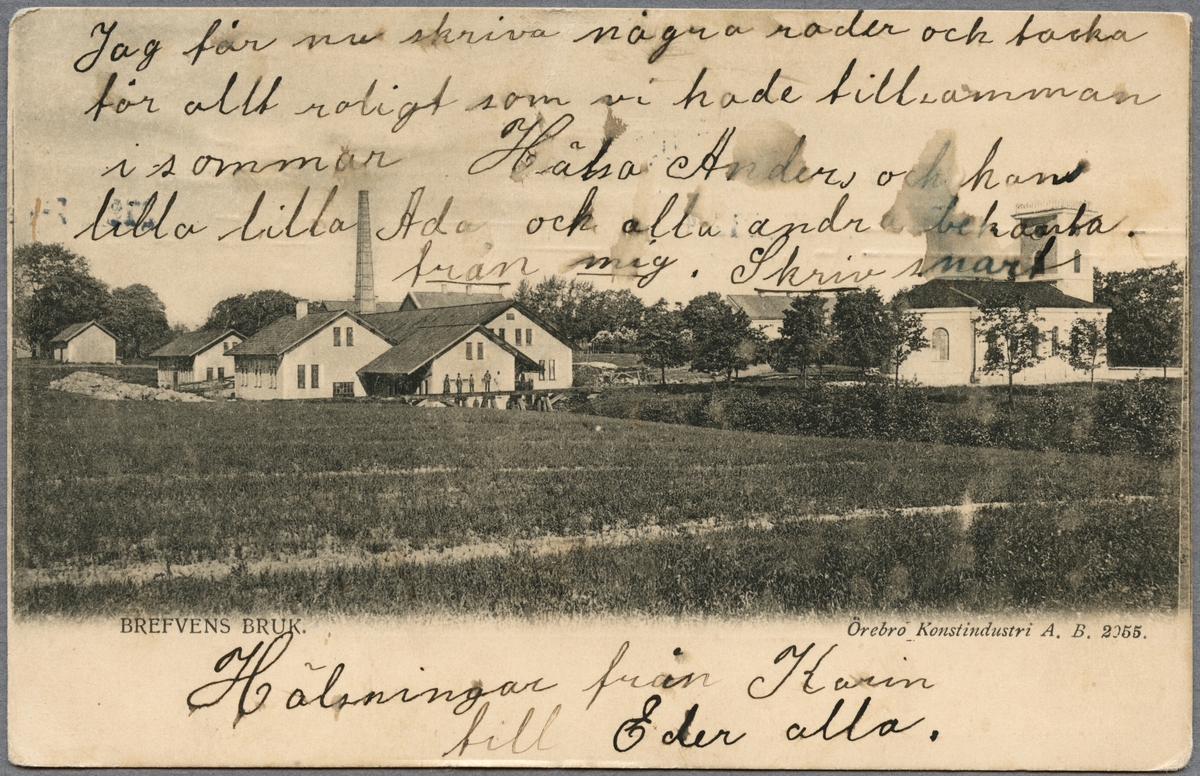 Jag får nu skriva några rader och tacka
för allt roligt som vi hade tillsamman
i sommar Hälsa Anders och hans
lilla lilla Ada och alla andra bekanta.
från mig. Skriv snart
BREFVENS BRUK.
Örebro Konstindustri A. B. 2055.
Hälsningar från Karin
till Eder alla.